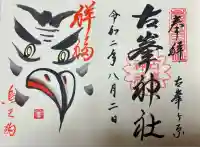 奉拝
古峯ヶ原
古峯神社
令和二年八月二日
祥福